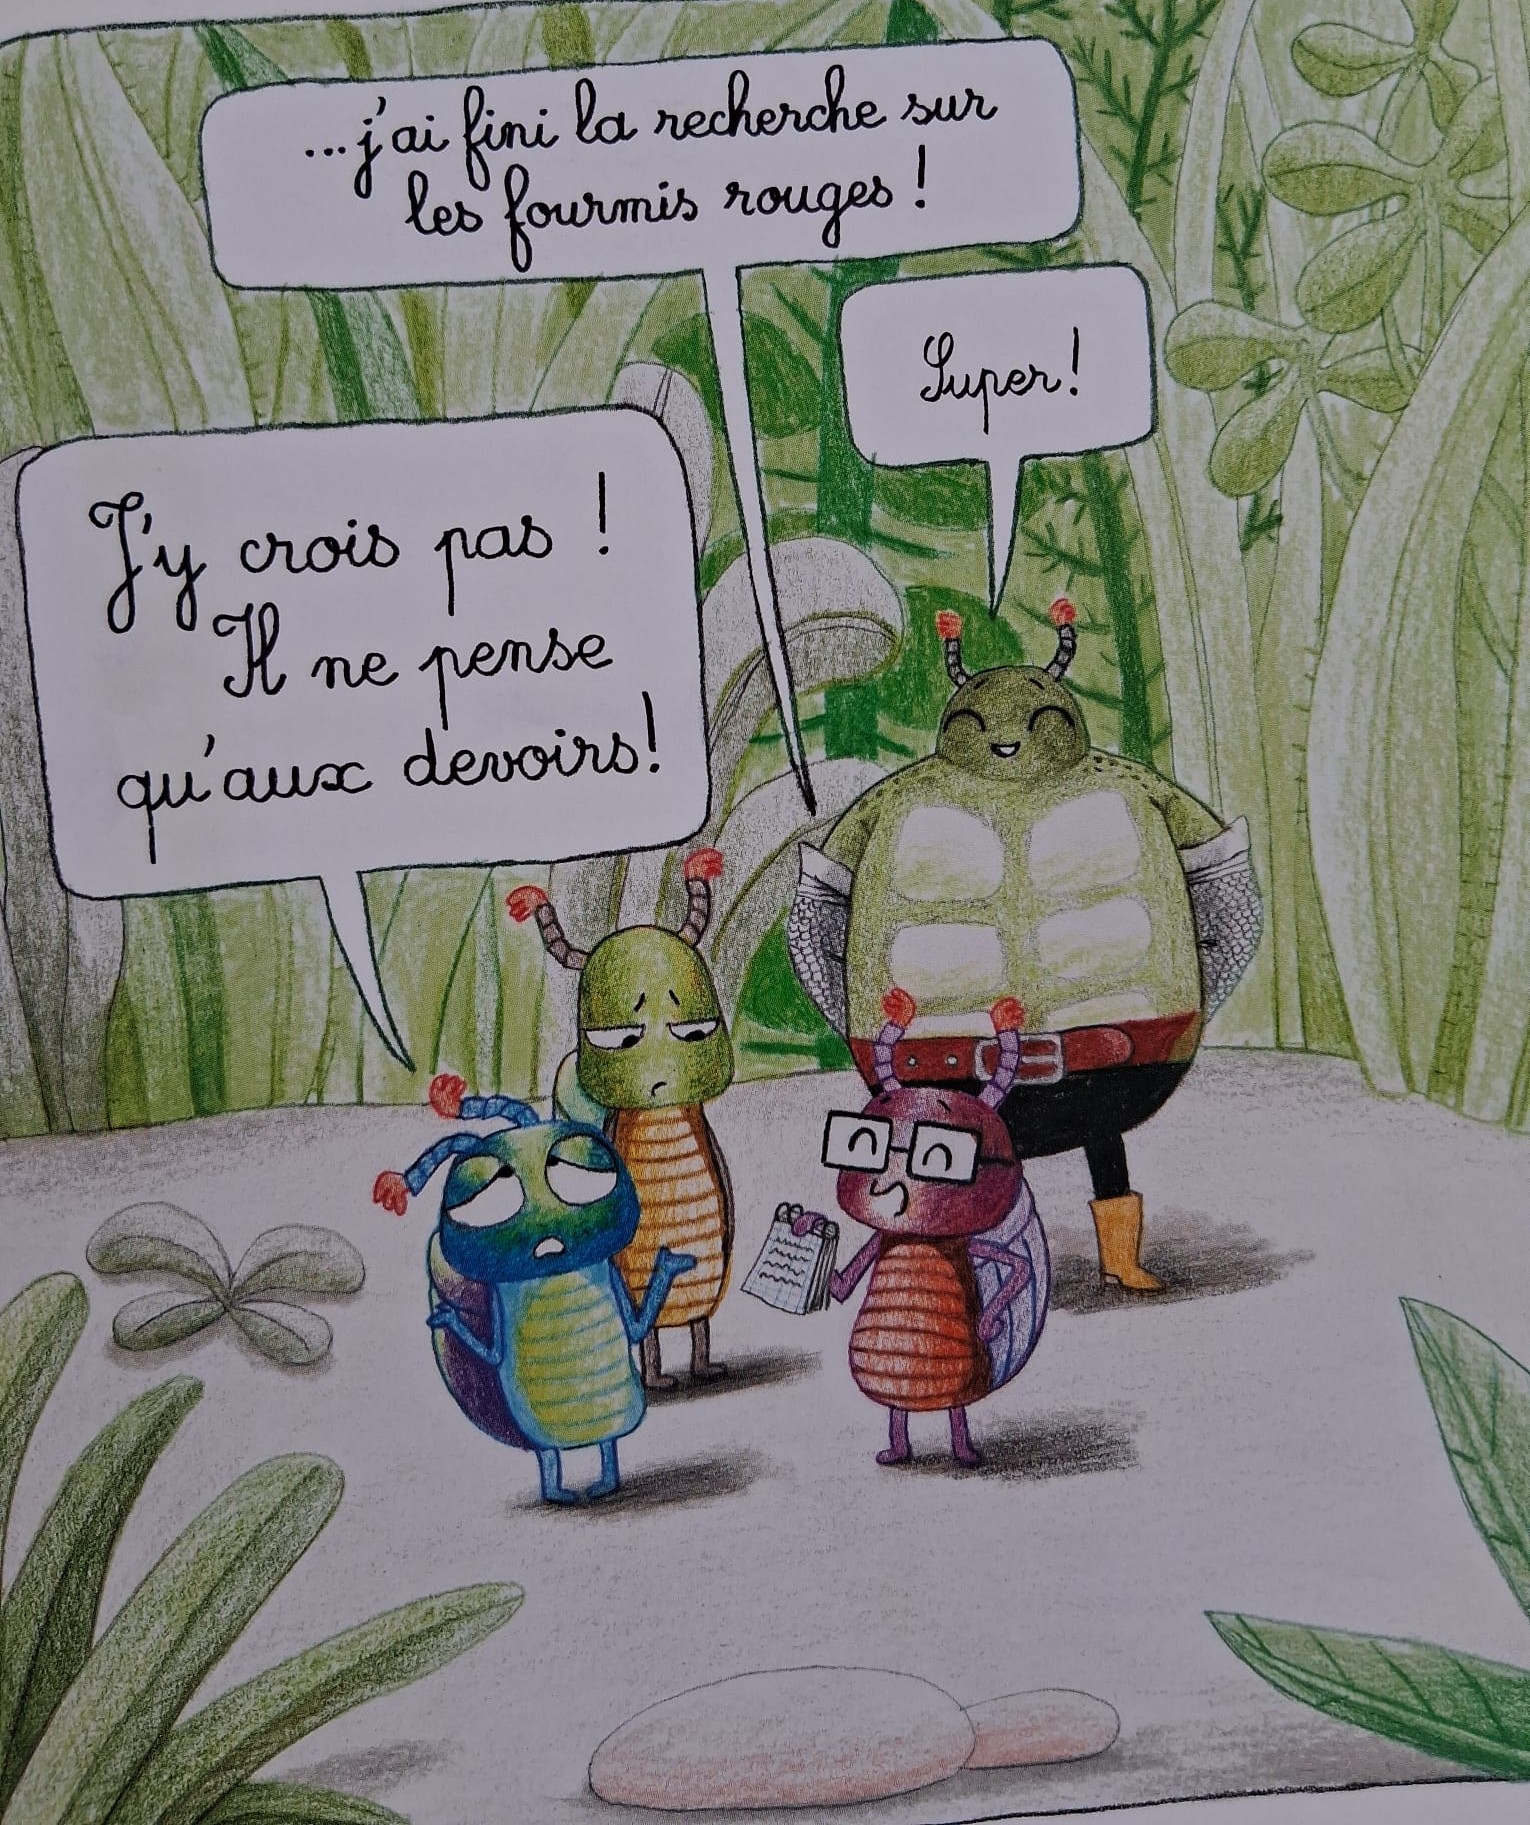 ...j'ai fini la recherche sur
les fourmis rouges !
Super !
J'y crois pas !
Il ne pense
qu'aux devoirs !